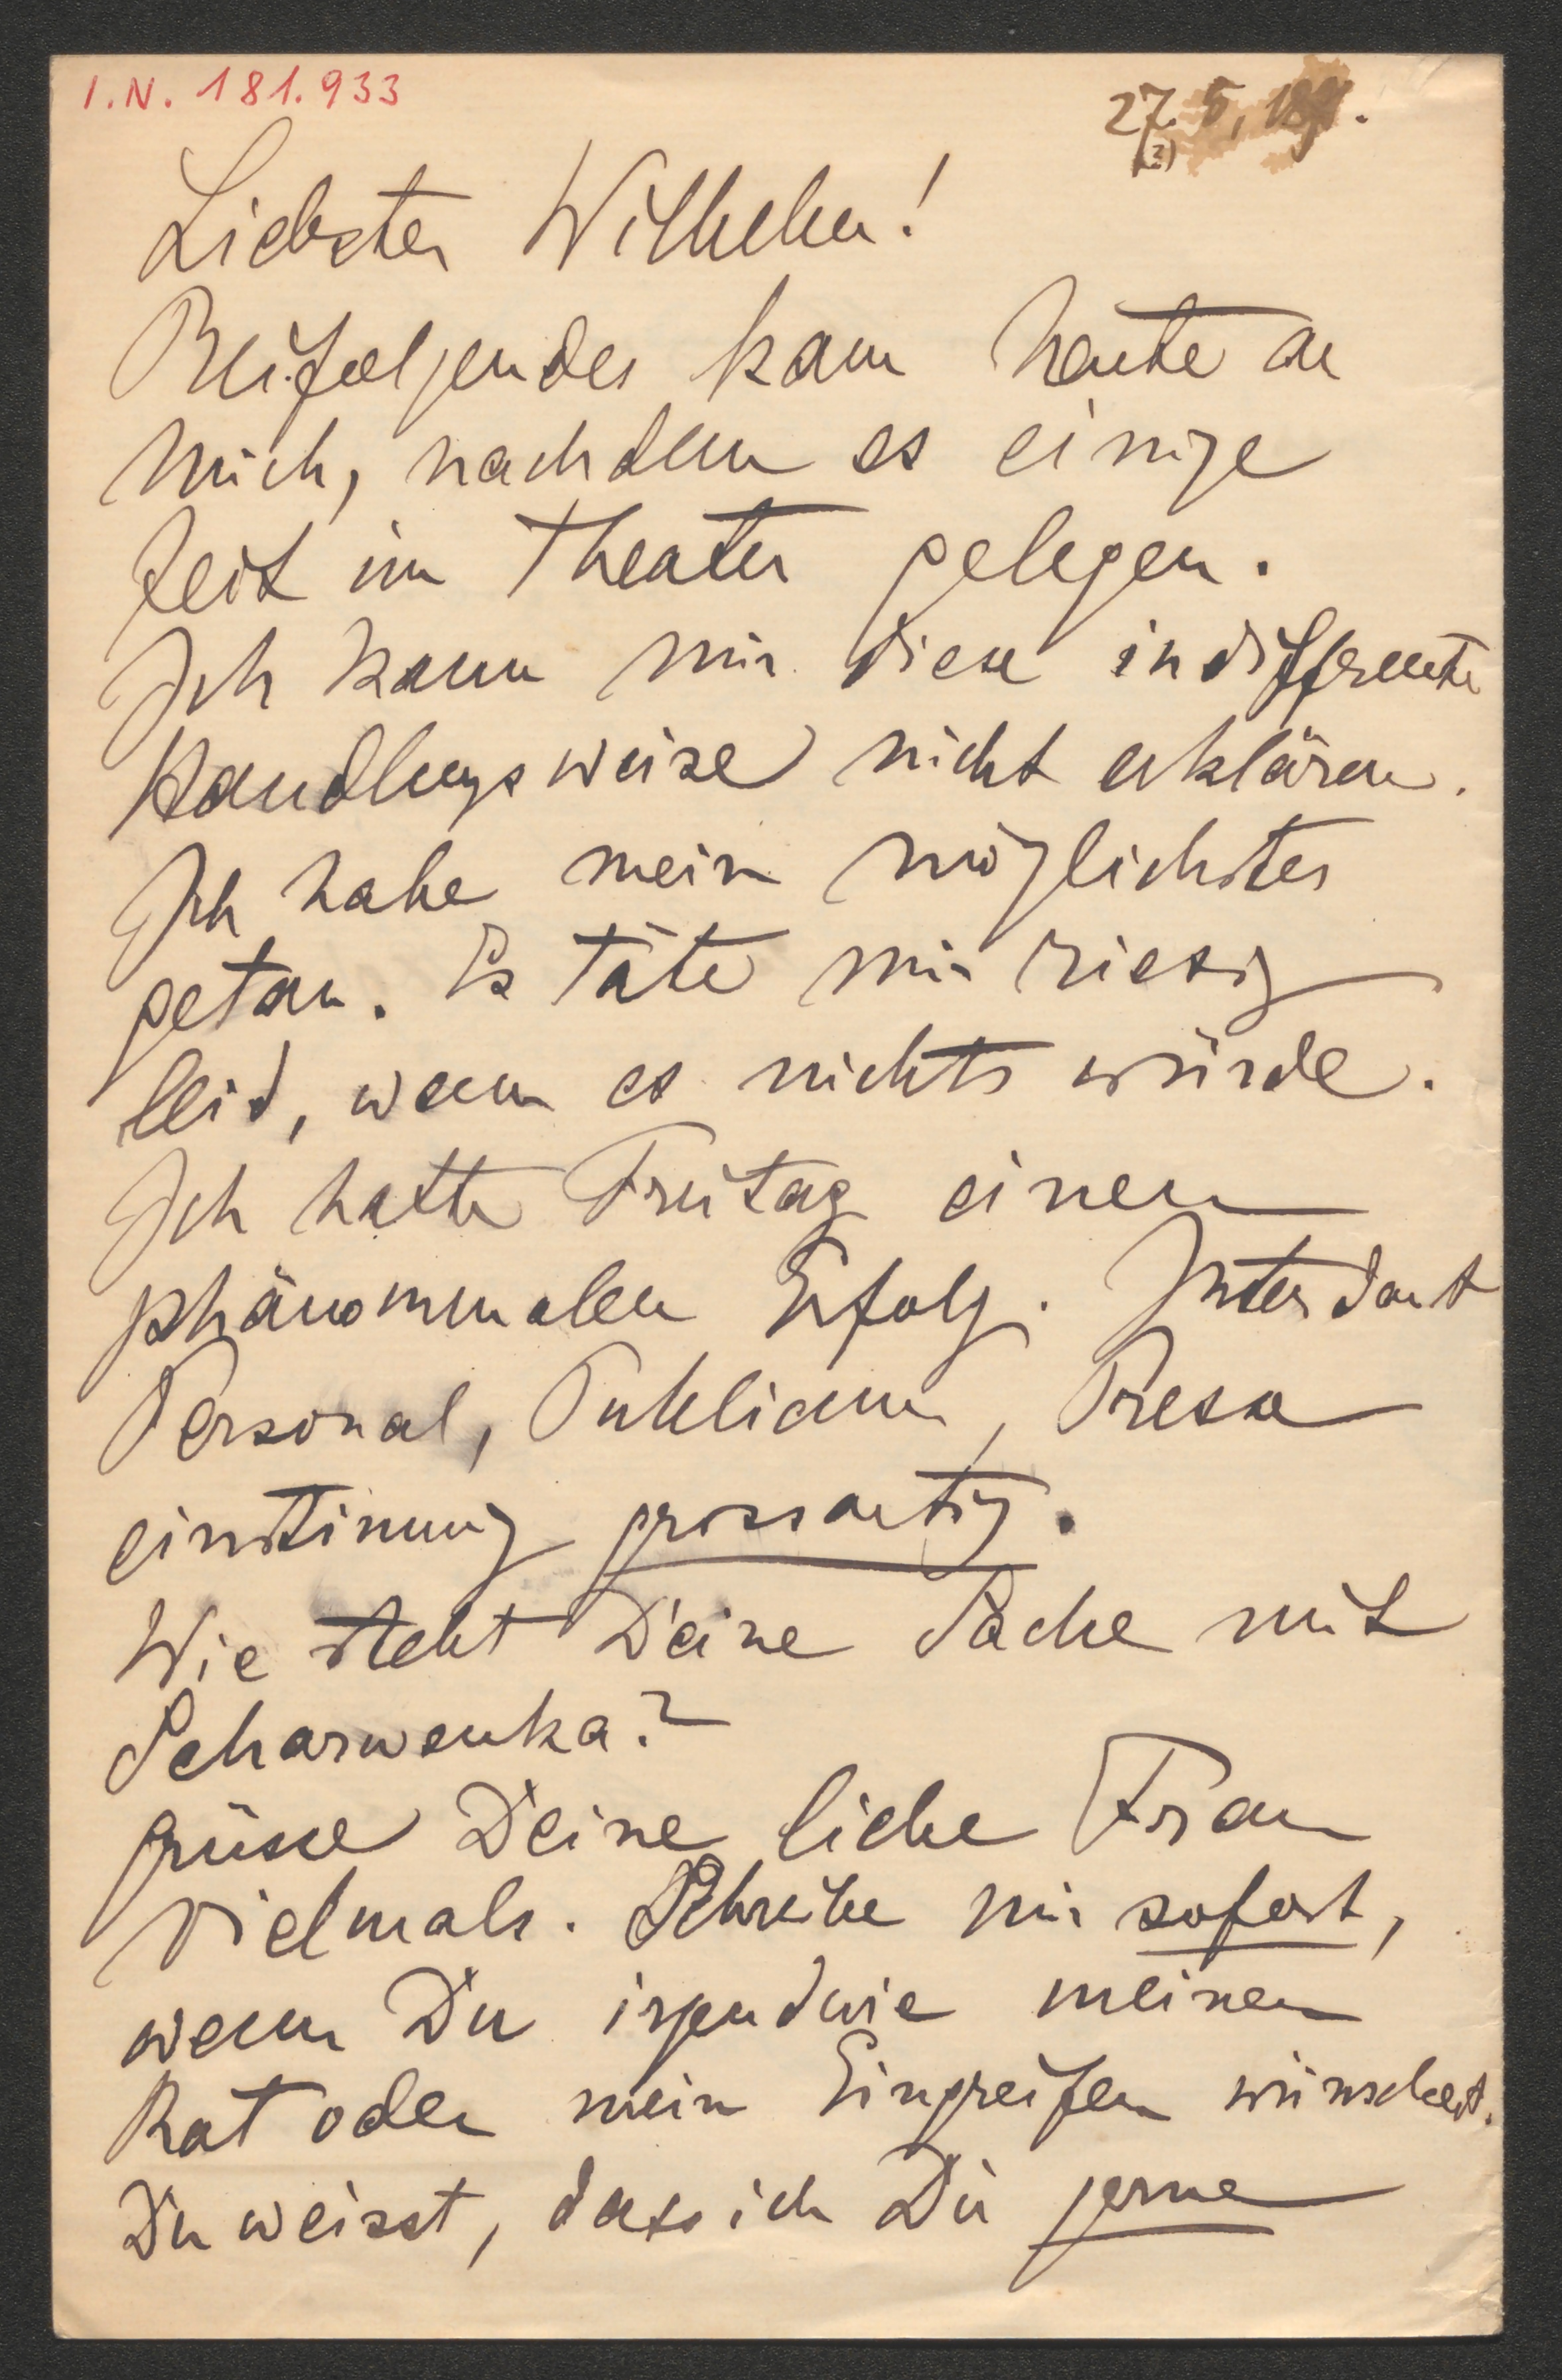 I.N. 181.933
27. 5,
(?)
Liebster Wilhelm!
Beifolgendes kam heute an
mich, nachdem es einige
Zeit im Theater gelegen.
Ich kann mir diese indifferente
Handlungsweise nicht erklären.
Ich habe mein möglichstes
getan. Es täte mir riesig
leid, wenn es nichts würde.
Ich hatte Freitag einen
phänomenalen Erfolg. Intendant
Personal, Publicum, Presse
einstimmig grossartig.
Wie steht Deine Sache mit
Scharwenka?
Grüsse Deine liebe Frau
vielmals. Schreibe mir sofort,
wenn Du irgendwie meinen
Rat oder mein Eingreifen wünschest.
Du weisst, dass ich Dir gerne